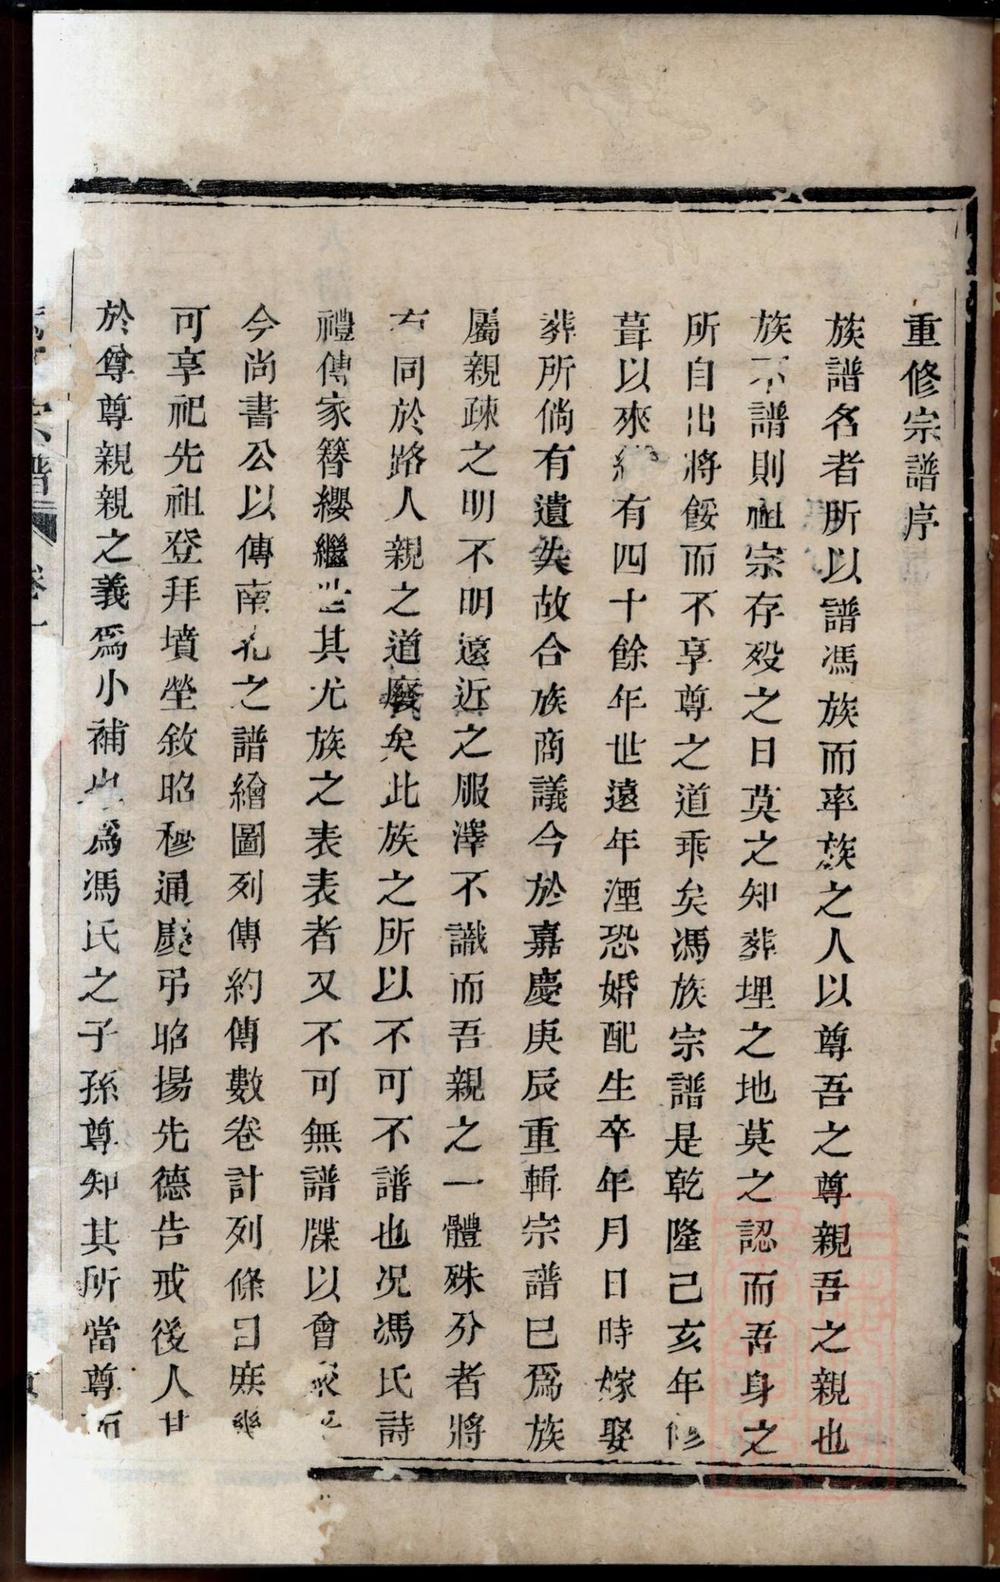 重修宗譜序
族譜名者所以譜馮族而率族之人以尊吾之尊親吾之親也
族不譜則祖宗存歿之日莫之知葬埋之地莫之認而吾身之
所自出將餒而不享尊之道乖矣馮族宗譜是乾隆己亥年修
葺以來紀有四十餘年世遠年湮恐婚配生卒年月日時嫁娶
葬所倘有遺失故合族商議今於嘉慶庚辰重輯宗譜巳為族
屬親疎之明不明遠近之服澤不識而吾親之一體殊分者將
有同於路人親之道廢矣此族之所以不可不譜也况馮氏詩
禮傳家簪纓繼世其尤族之表表者又不可無譜牒以會
今尚書公以傳南北之譜繪圖列傳約傳數卷計列條目庶幾
可享祀先祖登拜墳塋敘昭穆通慶弔昭揚先德告戒後人其
於尊尊親親之義為小補也為馮氏之子孫尊知其所當尊而
宗譜 卷一